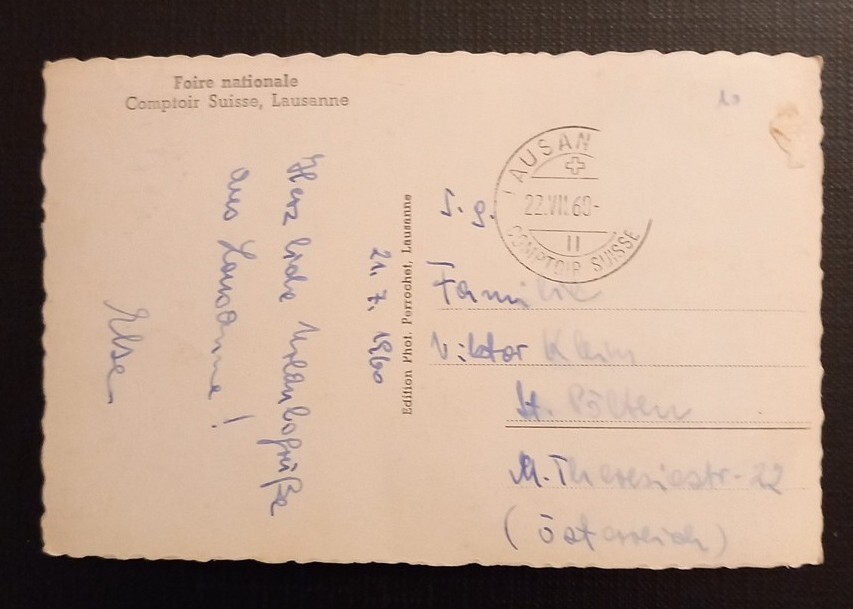 Foire nationale
Comptoir Suisse, Lausanne
21. 7. 1960
Herzliche Urlaubsgrüße
aus Lausanne!
Else
Edition Phot. Perrochet, Lausanne
LAUSAN
22.VII.60-
11
COMPTOIR SUISSE
Familie
Viktor Klein
St. Pölten
M. Theresiastr. 22
(Österreich)